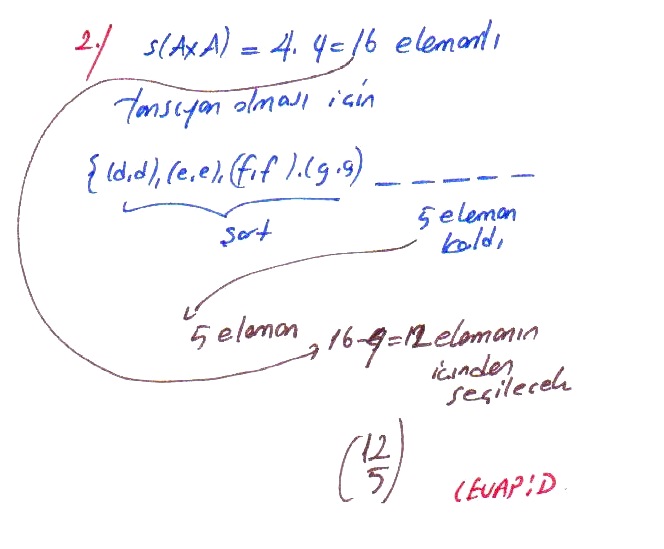 2./ s(AxA) = 4. 4=16 elemanlı
fonsiyon olması için
{(d,d),(e,e),(f,f).(g,g) _ _ _ _ _
şart
5 eleman
kaldı
5 eleman 16-4=12 elemanın
içinden
seçilecek
(12
5)
CEVAP:D